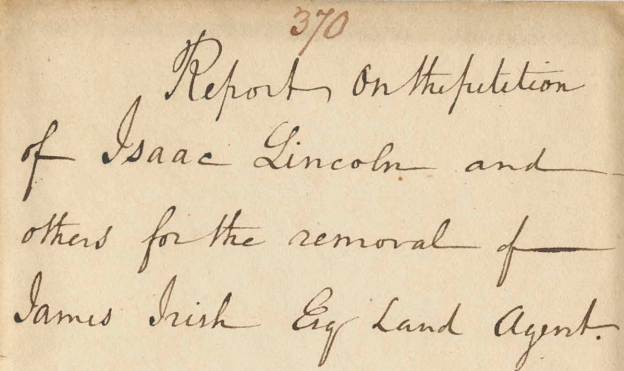 370
Report on the petition
of Isaac Lincoln and
others for the removal of
James Irish Esq Land Agent.